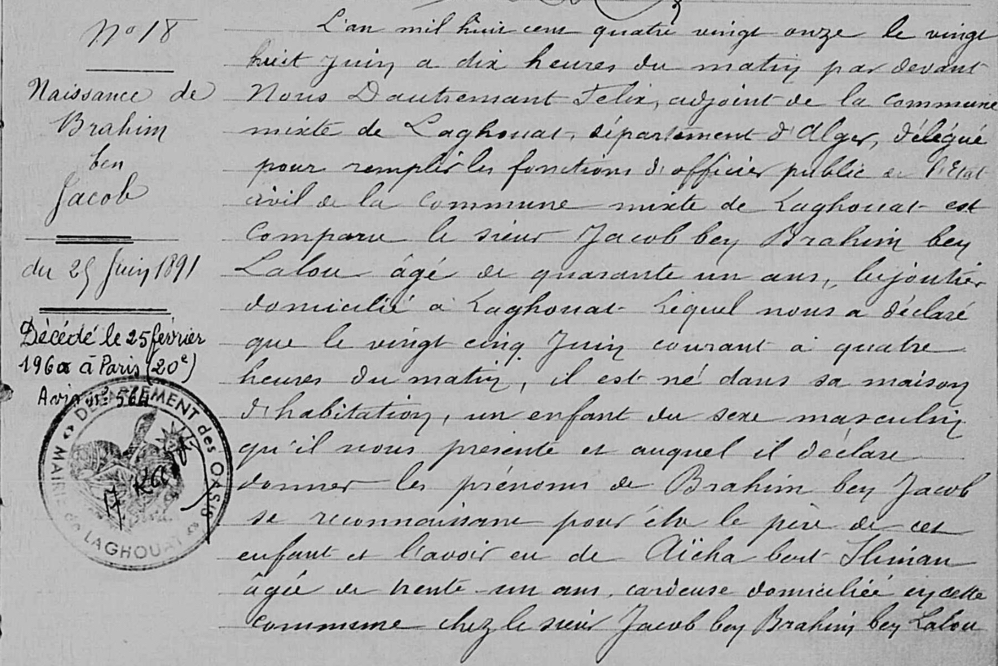 No 18
Naissance de
Brahim
ben
Jacob
du 25 Juin 1891
Décédé le 25 février
1960 à Paris (20e)
Avis No 564
DÉPARTEMENT des OASIS
MAIRIE de LAGHOUAT
L'an mil huit cent quatre vingt onze le vingt
huit Juin a dix heures du matin par devant
Nous Dautremant Felix, adjoint de la commune
mixte de Laghouat, département d'Alger, délégué
pour remplir les fonctions d'officier public de l'Etat
civil de la Commune mixte de Laghouat est
comparu le sieur Jacob ben Brahim ben
Lalou âgé de quarante un ans, bijoutier
domicilié à Laghouat Lequel nous a déclaré
que le vingt cinq Juin courant à quatre
heures du matin, il est né dans sa maison
d'habitation, un enfant du sexe masculin
qu'il nous présente et auquel il déclare
donner les prénoms de Brahim ben Jacob
se reconnaissant pour être le père de cet
enfant et l'avoir eu de Aïcha bent
âgée de trente un ans, cardeuse domiciliée en cette
commune chez le sieur Jacob ben Brahim ben Lalou